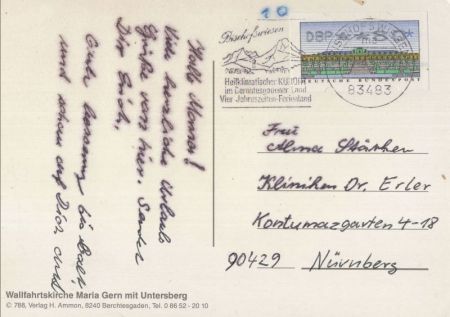 Hallo Mama!
Viele herzliche Urlaubs
Grüße von hier. Sendet
Dir Erich.
Gute Besserung bis bald!
und
10
Bischofswiesen
Heilklimatischer KURORT
im Berchtesgadener Land
Vier Jahreszeiten-Ferienland
DBP
DEUTSCHE BUNDESPOST
83483
Frau
Alma Stärken
Kliniken Dr. Erler
Kontumazgarten 4-18
90429 Nürnberg
Wallfahrtskirche Maria Gern mit Untersberg
© 788, Verlag H. Ammon, 8240 Berchtesgaden, Tel. 0 86 52 - 20 10